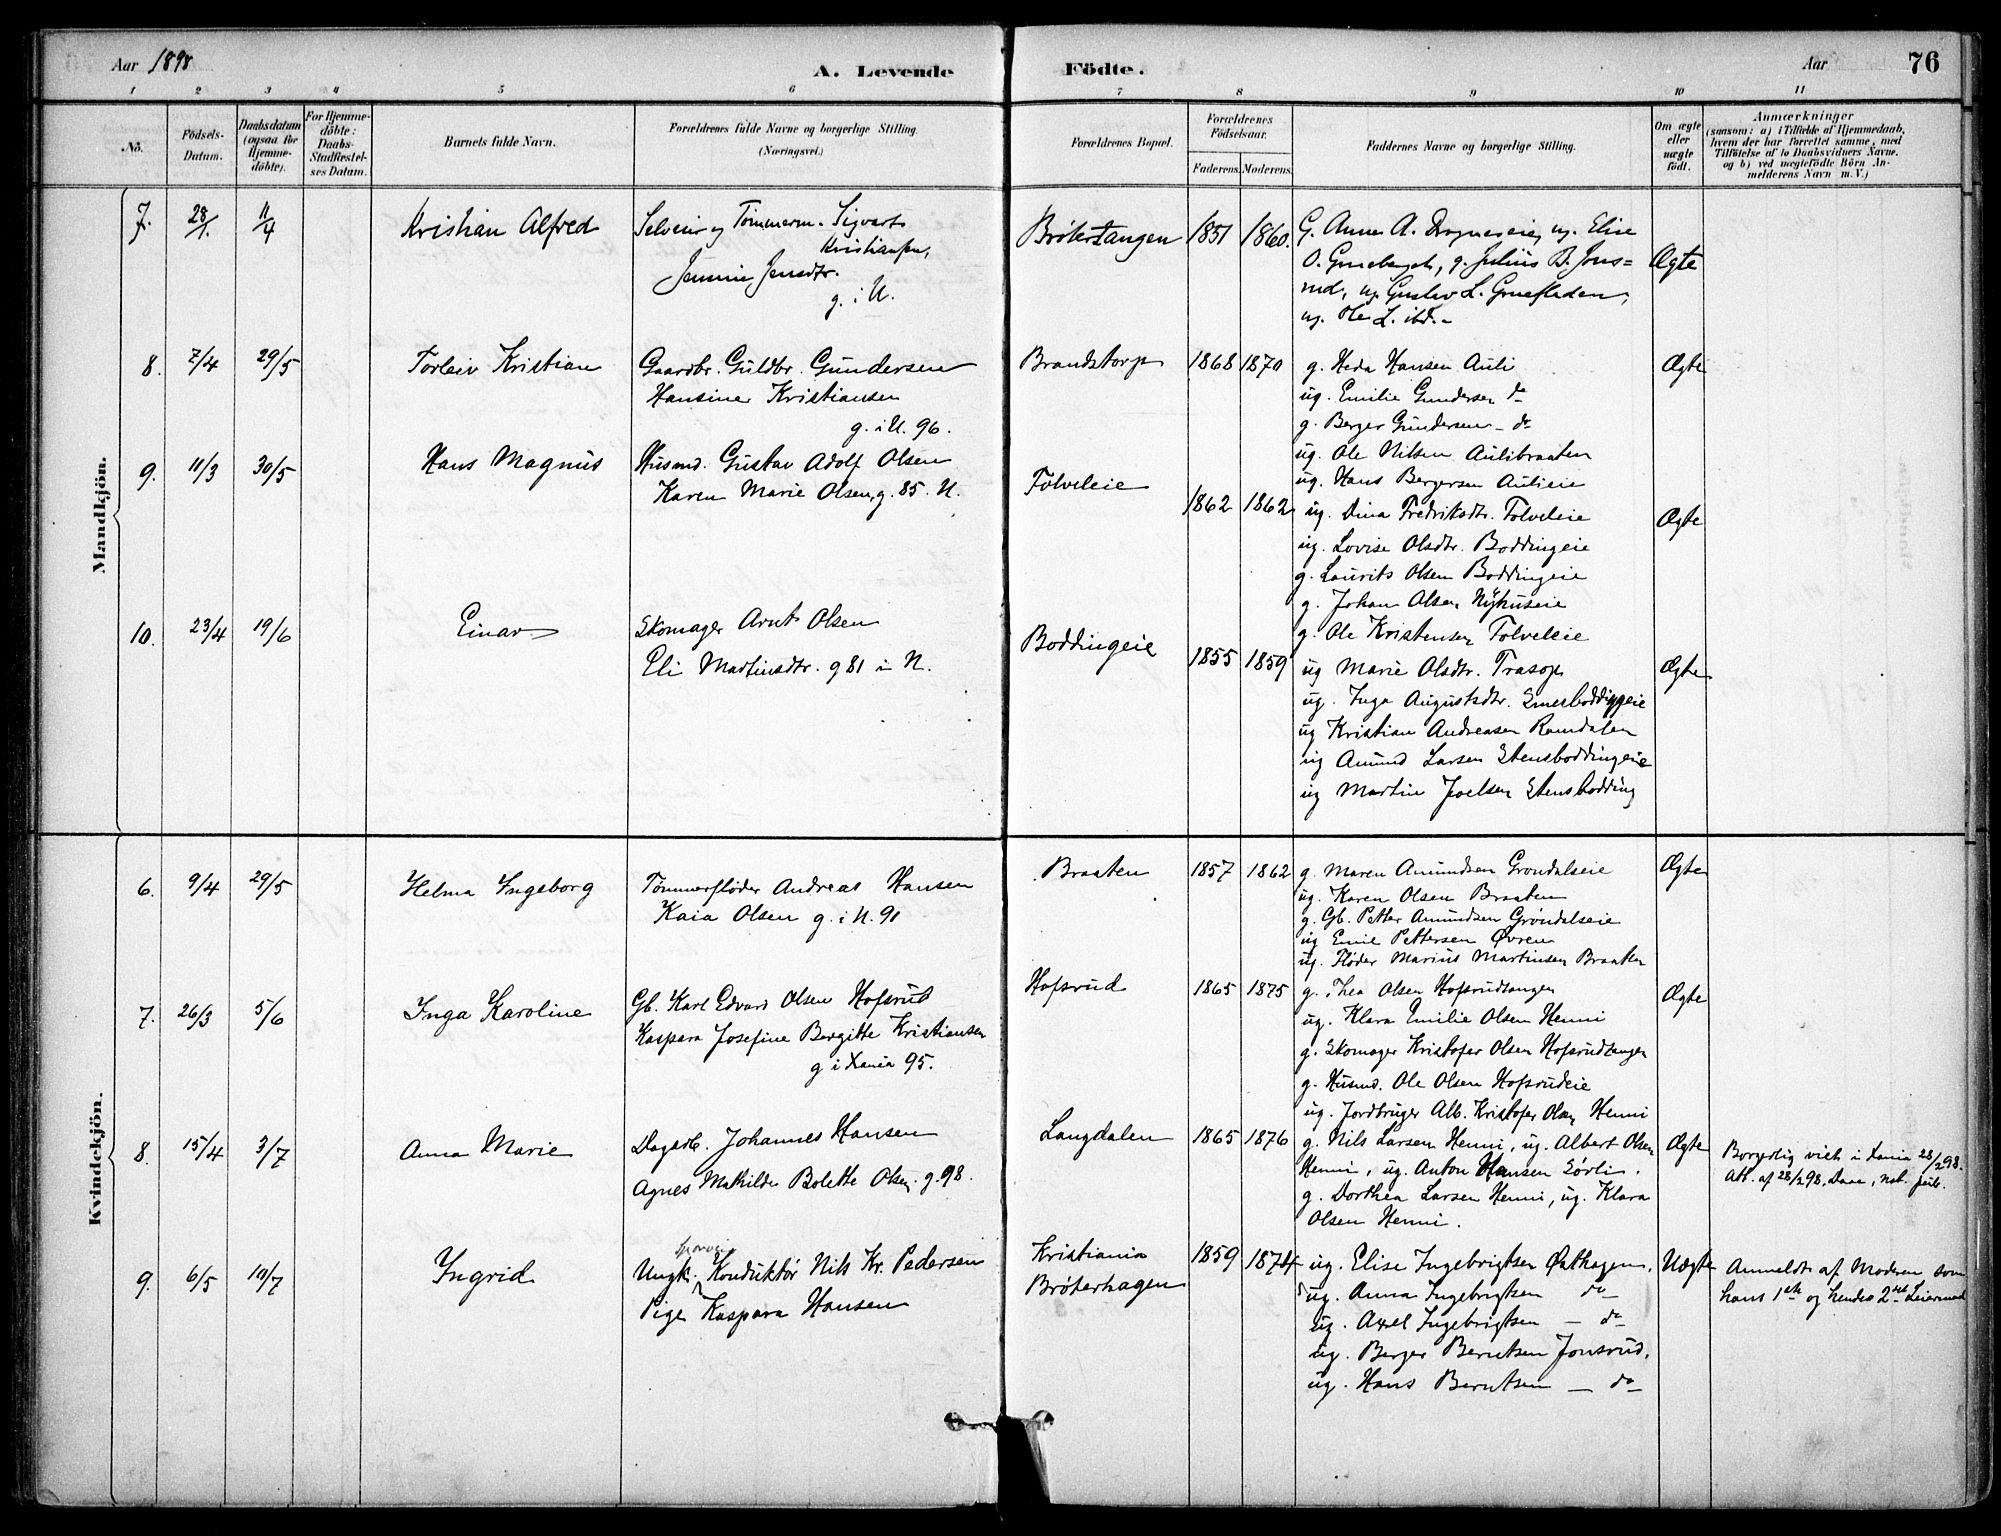 Aar 1898
A. Levende Födte.
Aar
76
1 2 3 4 5 6 7 8 9 10 11
No.
Födsels-Datum.
Daabsdatum (ogsaa for Hjemme-döbte).
For Hjemme-döbte: Daabs-Stadfæstel-ses Datum.
Barnets fulde Navn.
Forældrenes fulde Navne og borgerlige Stilling.
(Næringsvei.)
Forældrenes Bopæl.
Forældrenes Födselsaar.
Faderens. Moderens.
Faddernes Navne og borgerlige Stilling.
Om ægte eller uægte födt.
Anmærkninger
(saasom: a) i Tilfælde af Hjemmedaab,
hvem der har forrettet samme, med
Tilföielse af to Daabsvidners Navne,
og b) ved uægtefödte Börn An-
melderens Navn m. V.)
Mandkjön.
7. 28/1. 11/4 Kristian Alfred
Selveier og Tømmerm. Sigvart
Kristiansen,
Jensdtr.
g. i U.
Brøterstangen 1851 1860.
G. Anne A. ug. Elise
O. g. Julius B. Jons=
rud, ug. Gustav L.
ug. Ole L. ibd. -
Ægte
8. 7/4 29/5 Torleiv Kristian
Gaardbr. Guldbr. Gundersen
Hansine Kristiansen
g. i U. 96.
Brandstorp 1868 1870
g. Heda Hansen Auli
ug. Emilie Gundersen do
g. Berger Gundersen - do
ug. Ole Nilsen Aulibraaten
ug. Hans Bergersen Aulieie
Ægte
9. 11/3 30/5 Hans Magnus
Husmd. Gustav Adolf Olsen
Karen Marie Olsen, g. 85. N.
Tolveleie
1862 1862
ug. Dina Fredriksdtr. Tolveleie
ug. Lovise Olsdtr. Boddingeie
g. Laurits Olsen Boddingeie
g. Johan Olsen Nyhuseie
g. Ole Kristensen Tolveleie
Ægte
10. 23/4 19/6 Einar
Skomager Arnt Olsen
Eli Martinsdtr. g 81 i N.
Boddingeie
1855 1859
ug Marie Olsdtr. Trasop
ug. Inga Augustsdtr.
ug Kristian Andreasen Ramdalen
ug Amund Larsen Stensboddingeie
ug Martin Joelsen Stensbodding
Ægte
Kvindekjön.
6. 9/4 29/5 Helma Ingeborg
Tømmerfløder Andreas Hansen
Kaia Olsen g. i N. 91
Braaten 1857 1862
g. Maren Amundsen Grøndalseie
ug. Karen Olsen Braaten
g. Gb. Petter Amundsen Grøndalseie
ug Emil Pettersen Øvren
ug. Fløder Marius Martinsen Braaten
Ægte
7. 26/3 5/6 Inga Karoline
Gb. Karl Edvard Olsen Hofsrud
Kaspara Josefine Bergitte Kristiansen
g i Xania 95.
Hofsrud 1865 1875
g. Thea Olsen Hofsrudtangen
ug. Klara Emilie Olsen Henni
g. Skomager Kristofer Olsen Hofsrudtangen
g. Husmd. Ole Olsen Hofsrudeie
ug. Jordbruger Alb. Kristofer Olsen Henni
Ægte
8. 15/4 3/7 Anna Marie
Dagarb. Johannes Hansen
Agnes Mathilde Bolette Olsen. g. 98.
Langdalen 1865 1876
g. Nils Larsen Henni, ug. Albert Olsen
Henni, ug. Anton Hansen Sörli.
g. Dorthea Larsen Henni, ug. Klara
Olsen Henni.
Ægte
Borgerlig viet i Xania 28/2 98.
Att. af 28/2 98. Daae, not. publ.
9. 6/5 10/7 Ingrid
sporvei
Ungk. Konduktør Nils Kr. Pedersen
Pige Kaspara Hansen
Kristiania 1859 1874
Brøterhagen
ug. Elise Ingebrigtsen Østhagen.
ug. Anna Ingebrigtsen do
ug. Axel Ingebrigtsen - do
ug. Berger Berntsen Jonsrud.
ug. Hans Berntsen - do
Uægte
Anmeldt af Moderen som
hans 1ste og hendes 2det Leiermaal